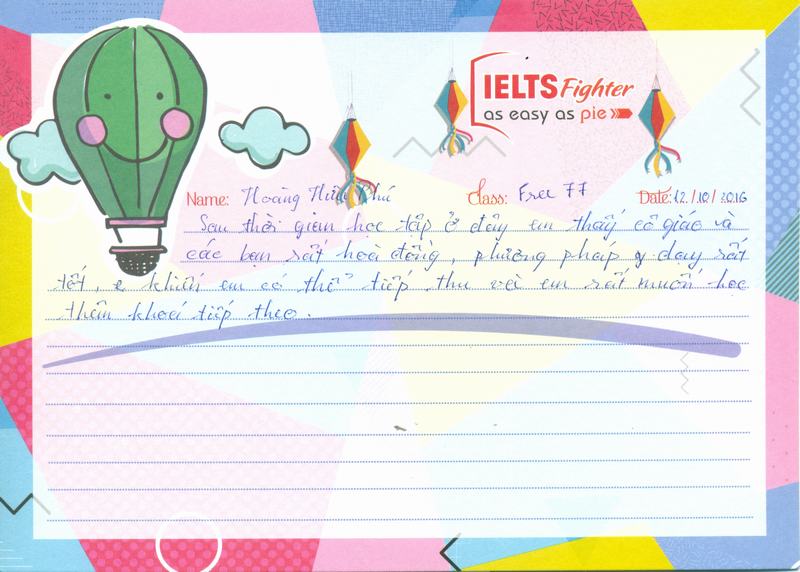 IELTS Fighter
as easy as pie
Name: Hoàng Hữu Phú Class: Free 77 Date: 12/10/2016
Sau thời gian học tập ở đây em thấy cô giáo và
các bạn rất hoà đồng, phương pháp dạy rất
tốt, khiến em có thể tiếp thu và em rất muốn học
thêm khoá tiếp theo.